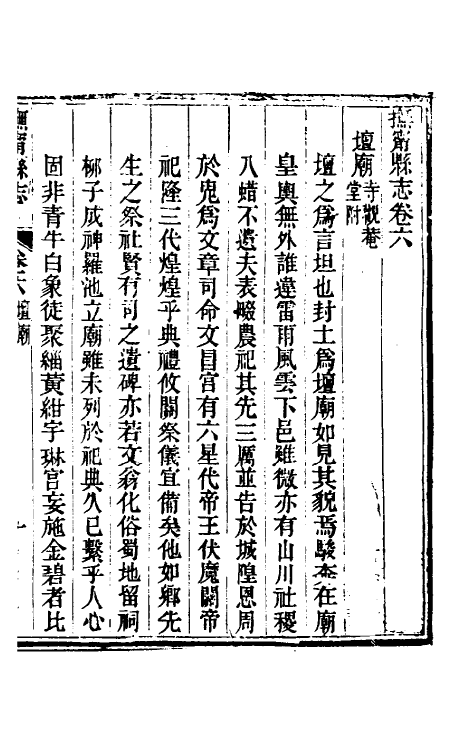 撫甯縣志卷六
壇廟寺觀菴堂附
壇之爲言坦也封土爲壇廟如見其貌焉駿奔在廟
皇輿無外誰違雷雨風雲下邑雖微亦有山川社稷
八蜡不遺夫表畷農祀其先三厲並告於城隍恩周
於鬼爲文章司命文昌宫有六星代帝王伏魔關帝
祀隆三代煌煌乎典禮攸關祭儀宜備矣他如鄉先
生之祭社賢有司之遺碑亦若文翁化俗蜀地留祠
柳子成神羅池立廟雖未列於祀典久已繫乎人心
固非青牛白象徒聚緇黄紺宇琳宫妄施金碧者比
撫甯縣志 卷六 壇廟 一